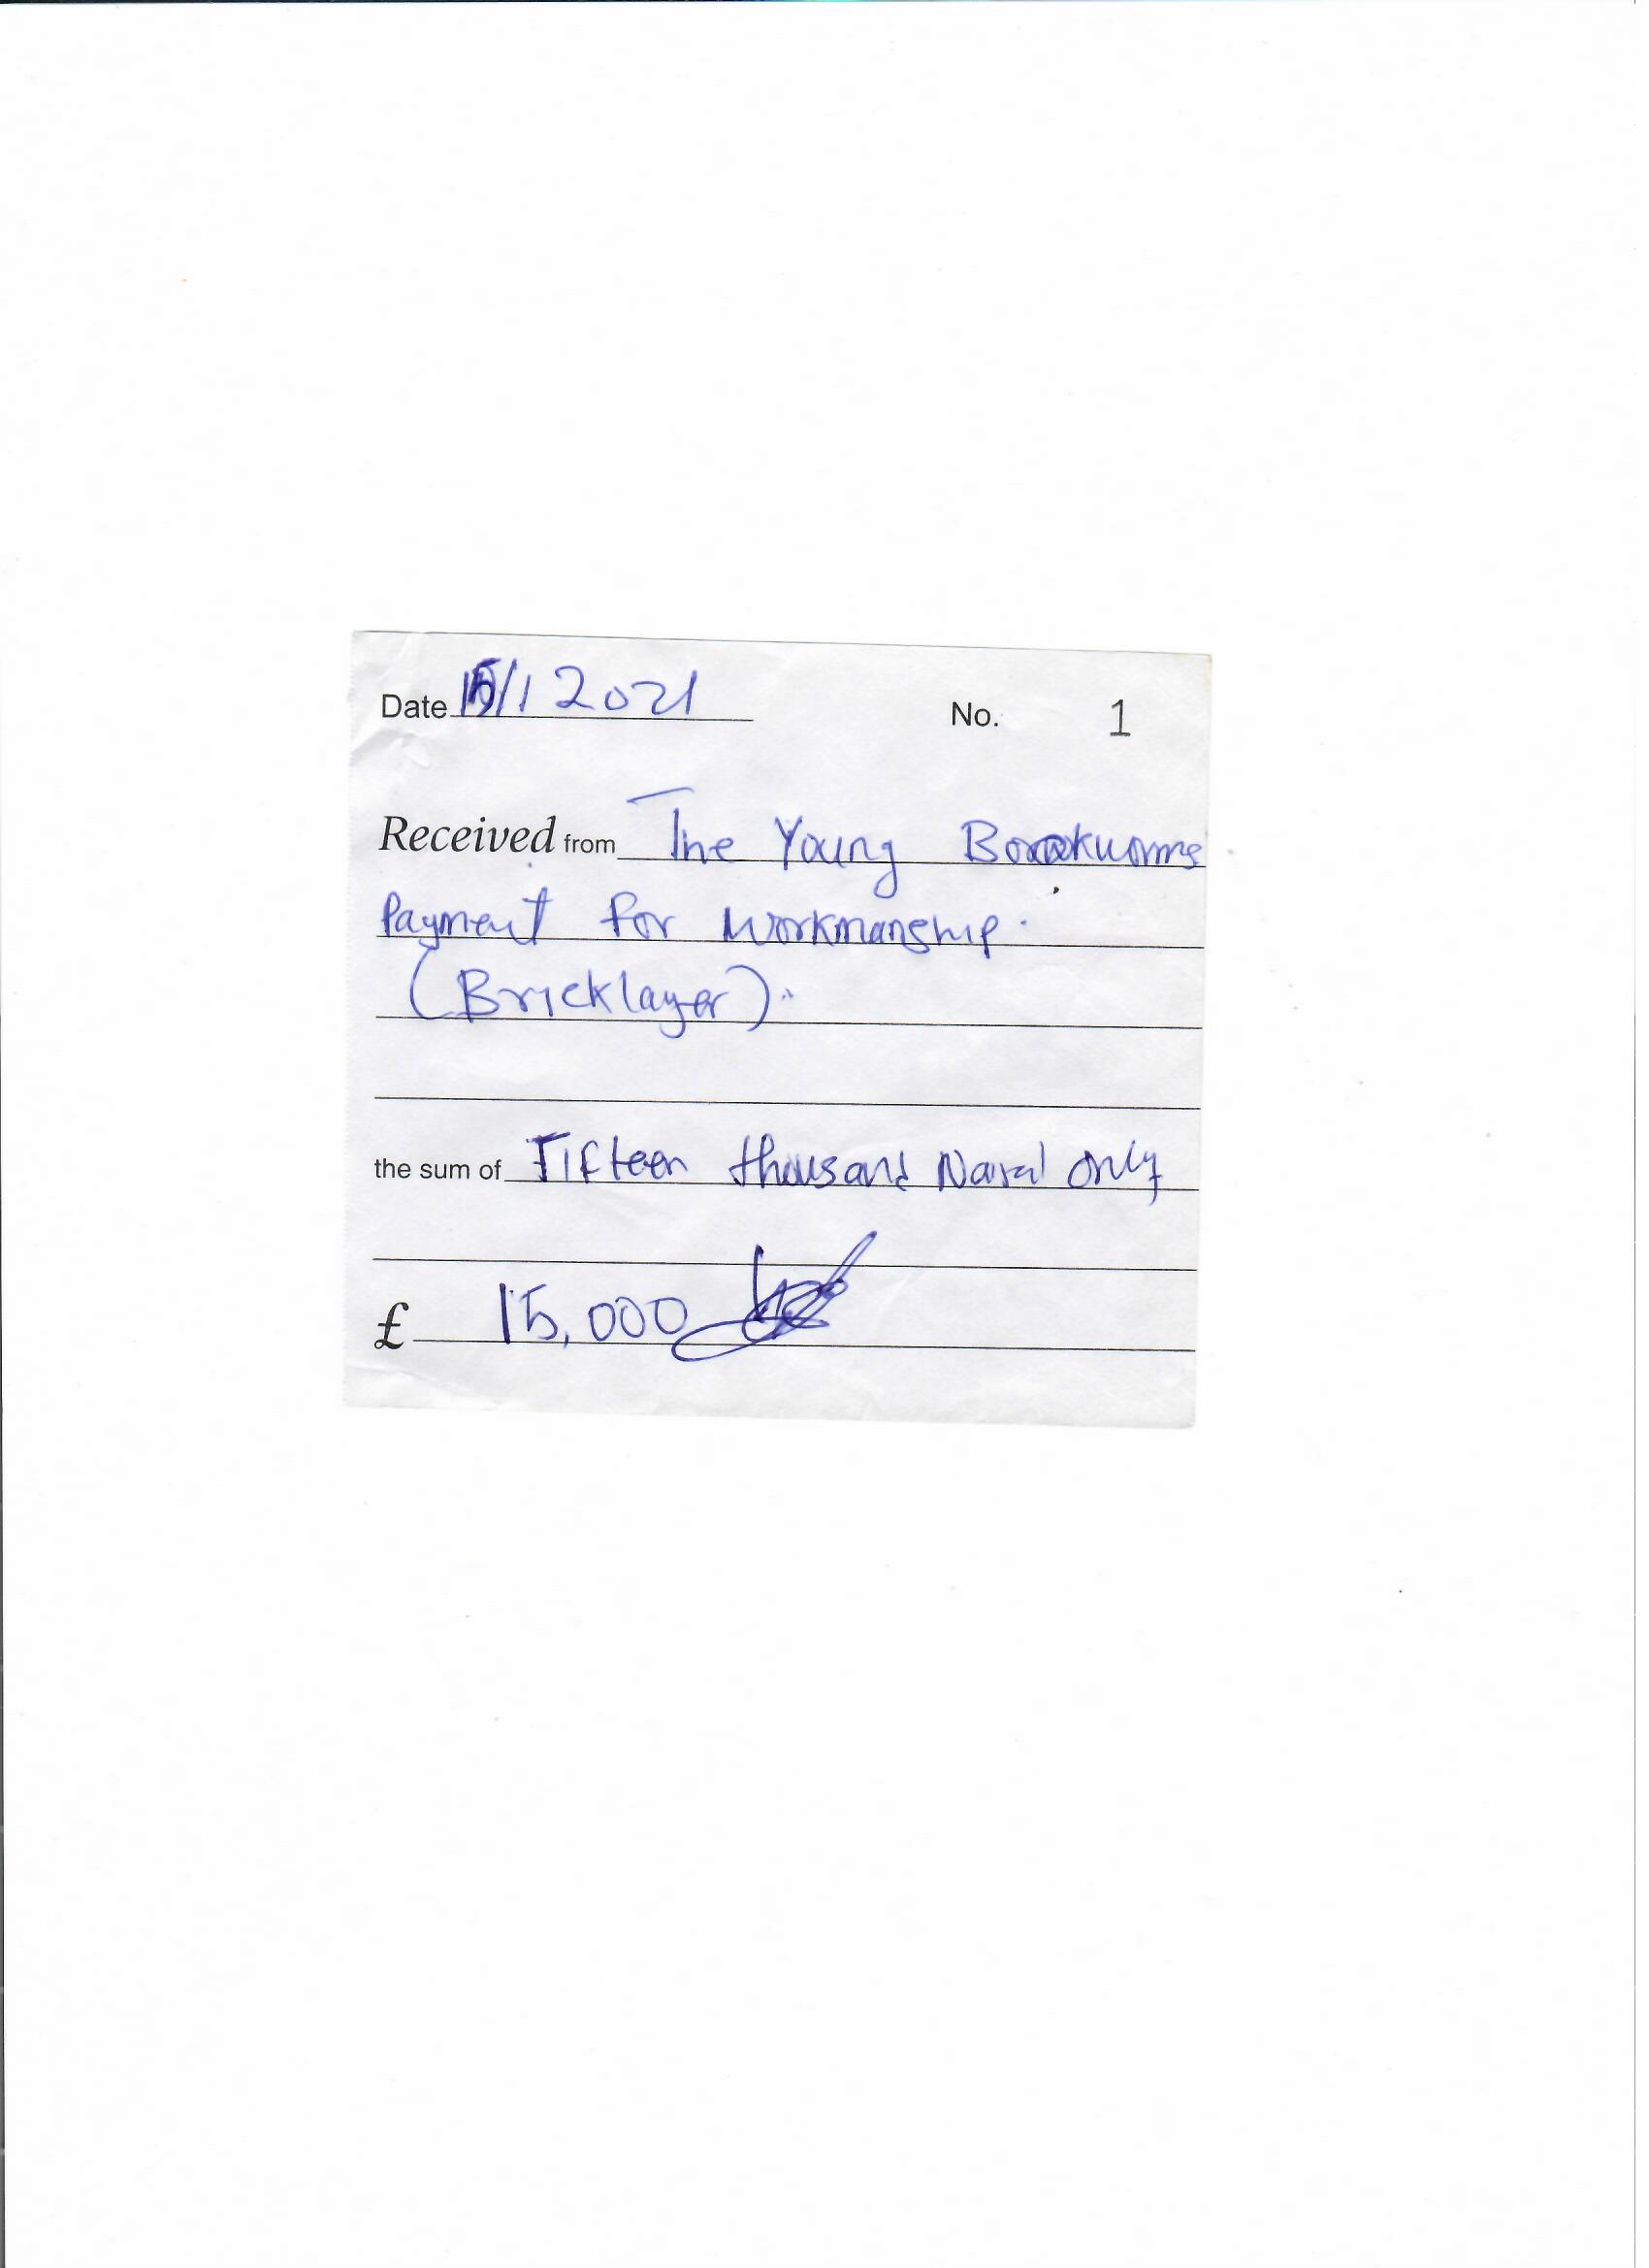 Date 15/1 2021 No. 1
Received from The Young Bookworms
Payment for workmanship.
(Bricklayer).
the sum of Fifteen thousand Naira only
£ 15,000